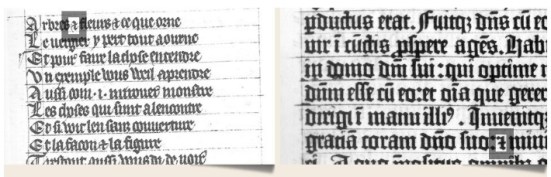 Arbres ⁊ fleurs ⁊ ce que orne
Le vergier y pert tout aourne
Et pour faire la chose entendre
Vn exemple vous vueil aprendre
Aussi com .i. mireour monstre
Les choses qui sont a lencontre
Et si voit len sans couuerture
Et la facon ⁊ la figure
Tretout aussi vous di de voir
ꝓductus erat. Fuitqꝫ dñs cū eo
vir ī cūctis ꝓspere agēs. Habi
in domo dñi sui: qui optime n
dñm esse cū eo: et oīa que gerer
dirigi ī manu illiꝰ. Inuenitqꝫ
graciā coram dño suo: ⁊ mi